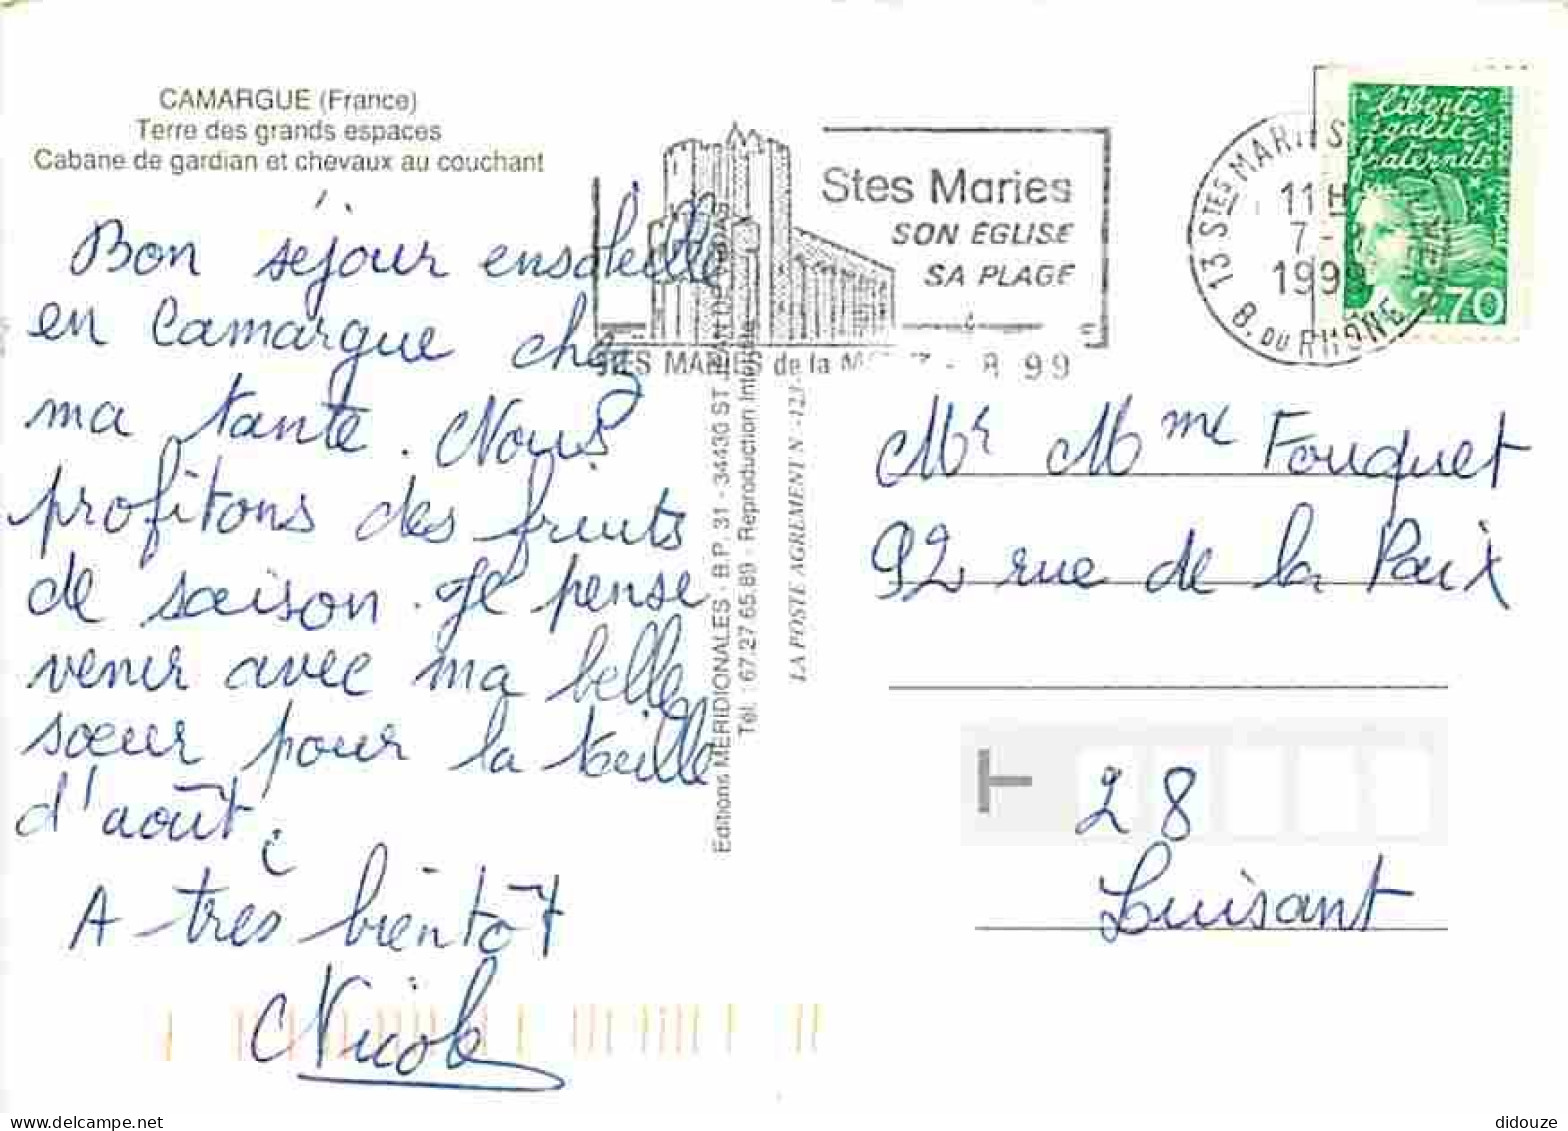 CAMARGUE (France)
Terre des grands espaces
Cabane de gardian et chevaux au couchant
Bon séjour ensoleillé
en Camargue chez
ma tante. Nous
profitons des fruits
de saison. Je pense
venir avec ma belle
sœur pour la
d'août.
A très bientôt
Nicole
Editions MERIDIONALES - B.P. 31 - 34430 ST JEAN DE VEDAS
Tél. : 67.27.65.89 - Reproduction Interdite
LA POSTE AGREMENT N° 123
Stes Maries
SON ÉGLISE
SA PLAGE
STES MARIES de la M 7 - 8 99
13 STES MARIES
11H
7 -
199
B. DU RHONE
liberté
égalité
fraternité
2.70
Mr Mme Fouquet
92 rue de la Paix
28
Luisant
didouze